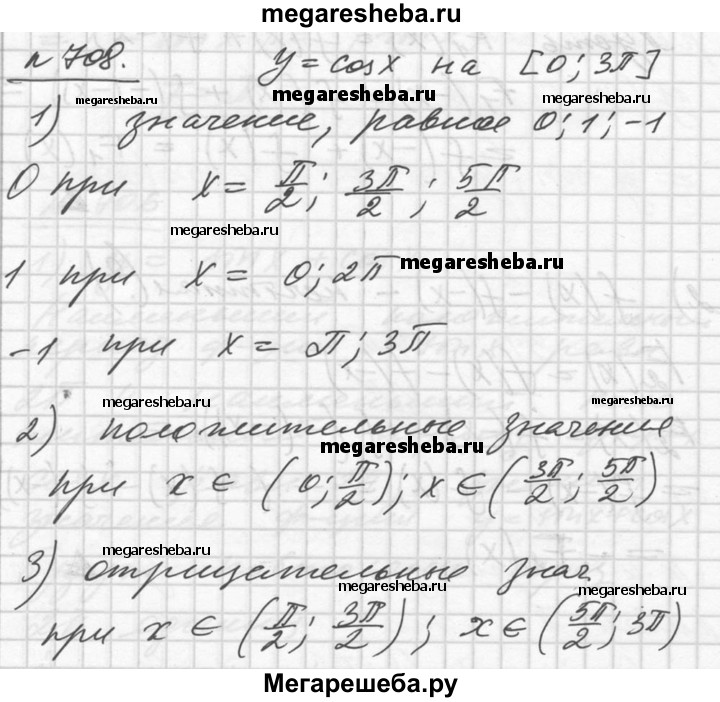 megaresheba.ru
n 708. y = cos x на [0; 3π]
megaresheba.ru megaresheba.ru megaresheba.ru
1) значение, равное 0; 1; -1
0 при x = π/2; 3π/2; 5π/2
megaresheba.ru
1 при x = 0; 2π megaresheba.ru
-1 при x = π; 3π
megaresheba.ru megaresheba.ru
2) положительные значения
megaresheba.ru
при x ∈ (0; π/2); x ∈ (3π/2; 5π/2)
megaresheba.ru
3) отрицательные знач.
megaresheba.ru megaresheba.ru
при x ∈ (π/2; 3π/2); x ∈ (5π/2; 3π)
Мегарешеба.ру